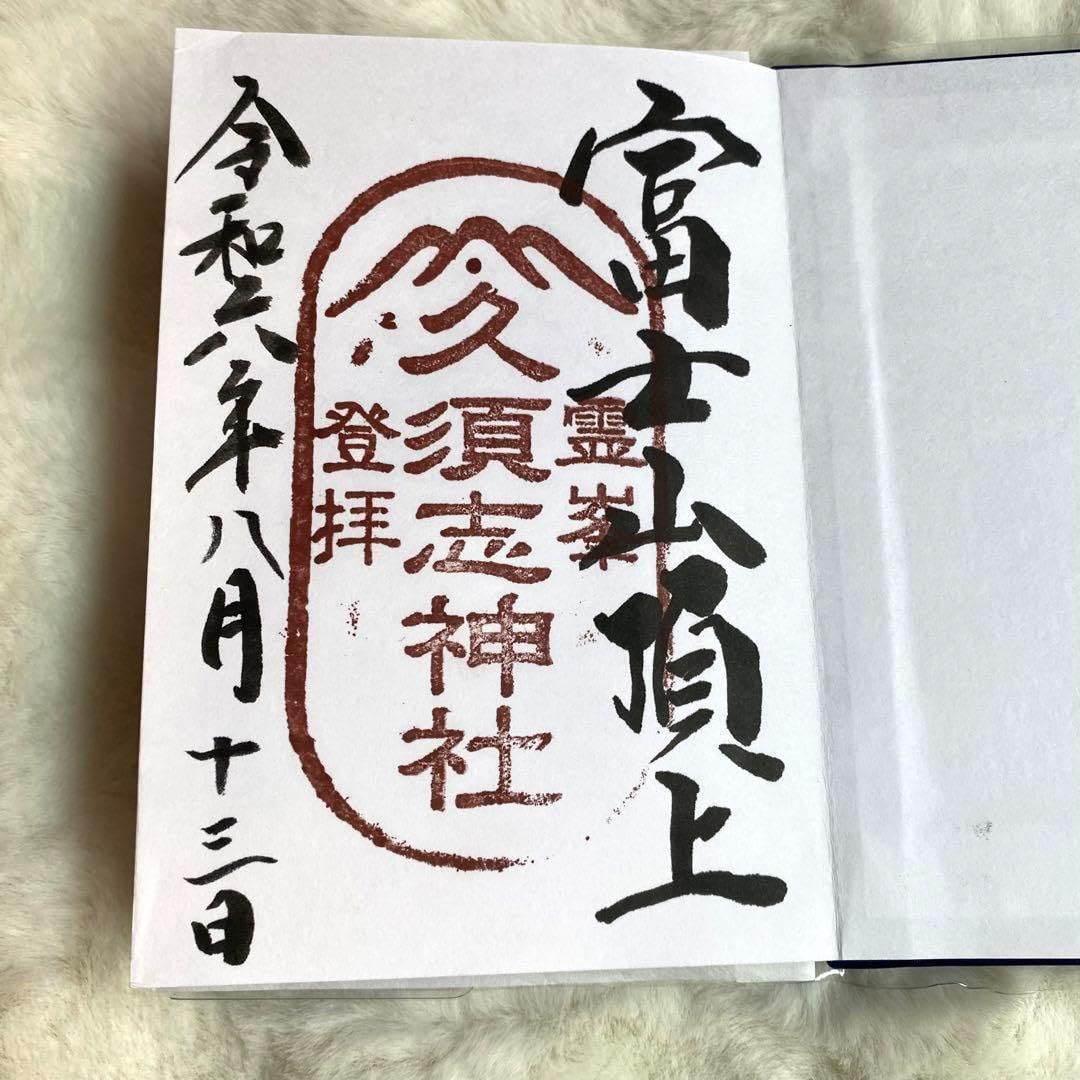 富士山頂上
霊峯
久須志神社
登拝
令和六年八月十三日